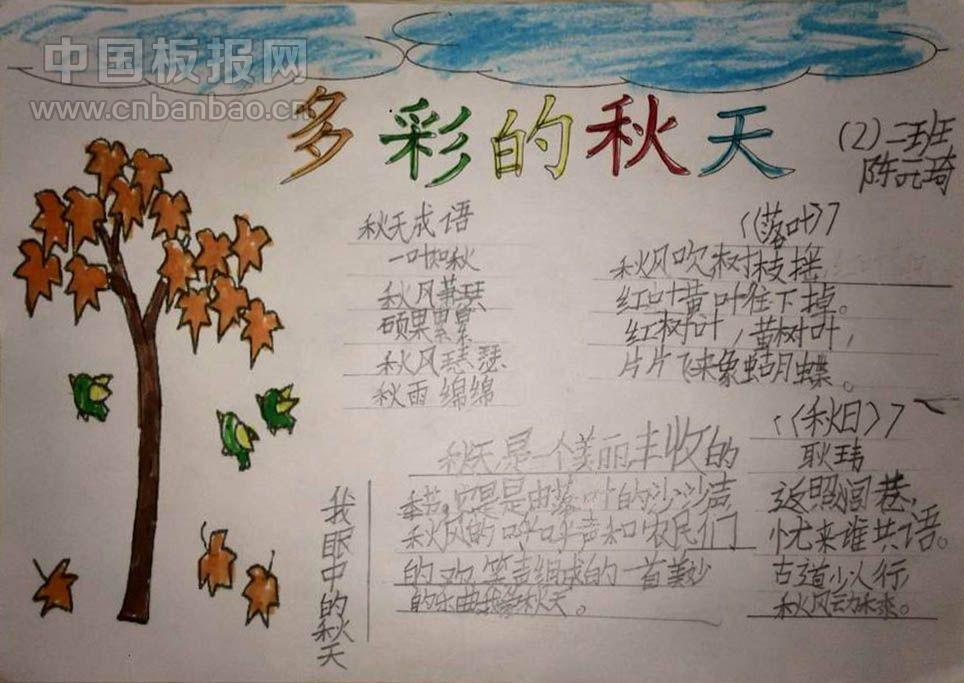 中国板报网
www.cnbanbao.cn
多彩的秋天
(2)二班
陈元琦
秋天成语
一叶知秋
秋风萧瑟
硕果累累
秋风瑟瑟
秋雨绵绵
《落叶》
秋风吹,树枝摇,
红叶黄叶往下掉。
红树叶,黄树叶,
片片飞来象蝴蝶。
我眼中的秋天
秋天,是一个美丽丰收的
季节,是由落叶的沙沙声
秋风的呼呼声和农民们
的欢笑声组成的一首美妙
的乐曲我爱秋天。
《秋日》
耿玮
返照闾巷,
忧来谁共语。
古道小人行,
秋风动禾黍。